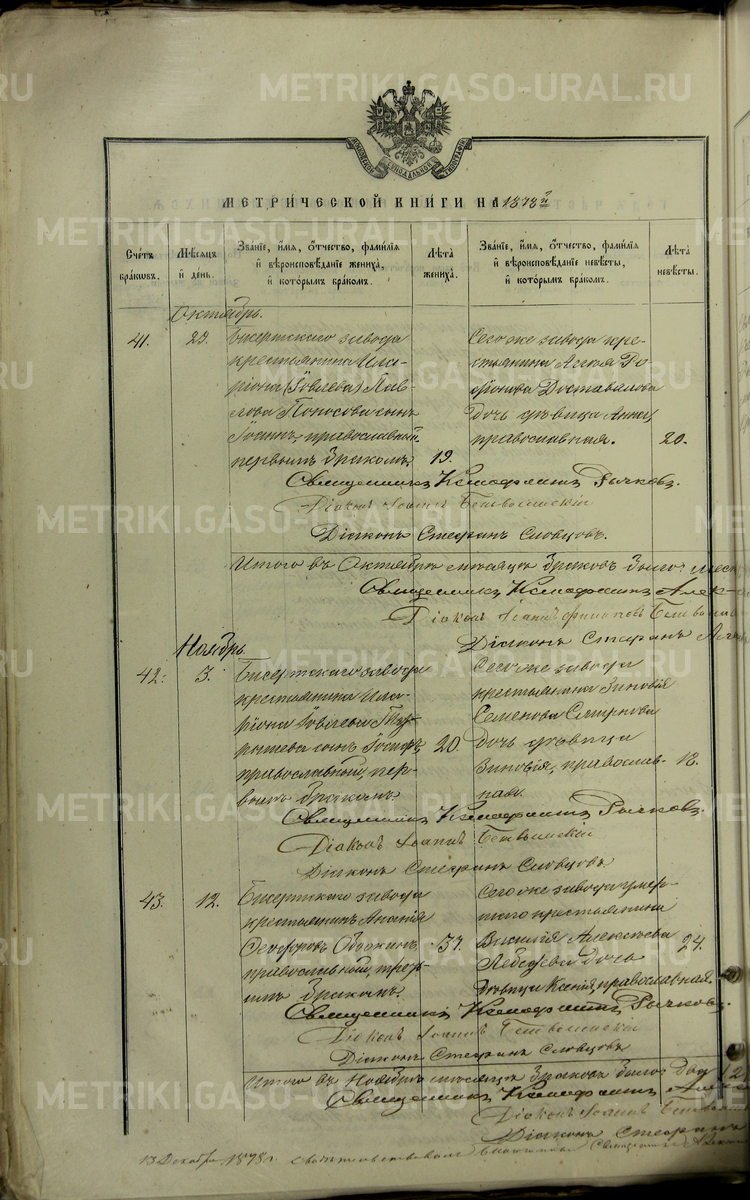 METRIKI.GASO-URAL.RU
МЕТРИЧЕСКОЙ КНИГИ НА 1878й
Счетъ браковъ.
Мѣсяцъ и день.
Званіе, имя, отчество, фамилія и вѣроисповѣданіе жениха, и которымъ бракомъ.
Лѣта жениха.
Званіе, имя, отчество, фамилія и вѣроисповѣданіе невѣсты, и которымъ бракомъ.
Лѣта невѣсты.
Октябрь.
41.
Бисертскаго завода
крестьянина Ила-
ріона (Іовлева) Пав-
лова Поносова сынъ
Іоаннъ, православный,
первымъ бракомъ.
19.
Сегоже завода кре-
стьянина
Доставалова
дочь дѣвица Анна,
православная.
20.
Священникъ Ксенофонтъ Рычковъ.
Діаконъ Іоаннъ
Діаконъ Стефанъ Словцовъ.
Итого въ Октябрѣ мѣсяцѣ браковъ было:
Священникъ Ксенофонтъ
Діаконъ Іоаннъ
Діаконъ Стефанъ
Ноябрь.
42.
3.
Бисертскаго завода
крестьянина Ила-
ріона Іовлева
сынъ Іосифъ,
православный, пер-
вымъ бракомъ.
20.
Сегоже завода
крестьянина Зиновія
Семенова Смирнова
дочь дѣвица
Зиновія, православ-
ная.
18.
Священникъ Ксенофонтъ Рычковъ.
Діаконъ Іоаннъ
Діаконъ Стефанъ Словцовъ
43.
12.
Бисертскаго завода
крестьянинъ Ананія
Ѳеодоровъ
православный,
бракомъ.
37.
Сегоже завода умер-
шаго крестьянина
Василія Алексѣева
Лебедева дочь
дѣвица Ксенія, православная.
24.
Священникъ Ксенофонтъ Рычковъ.
Діаконъ Іоаннъ
Діаконъ Стефанъ Словцовъ
Итого въ Ноябрѣ мѣсяцѣ браковъ было два /2
Священникъ Ксенофонтъ
Діаконъ Іоаннъ
Діаконъ Стефанъ
13 Декабря 1878 г.